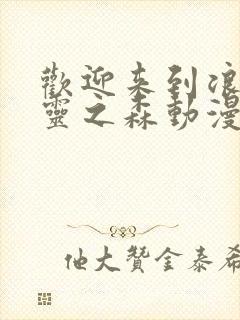 歡迎来到浪
靈之森動漫
他大贊金泰希